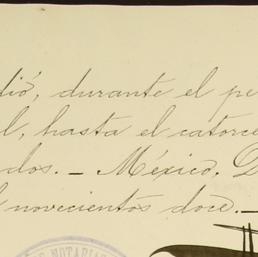 dió, durante el pe
l, hasta el catorce
dos. — México, D
l novecientos doce. —
NOTARIA